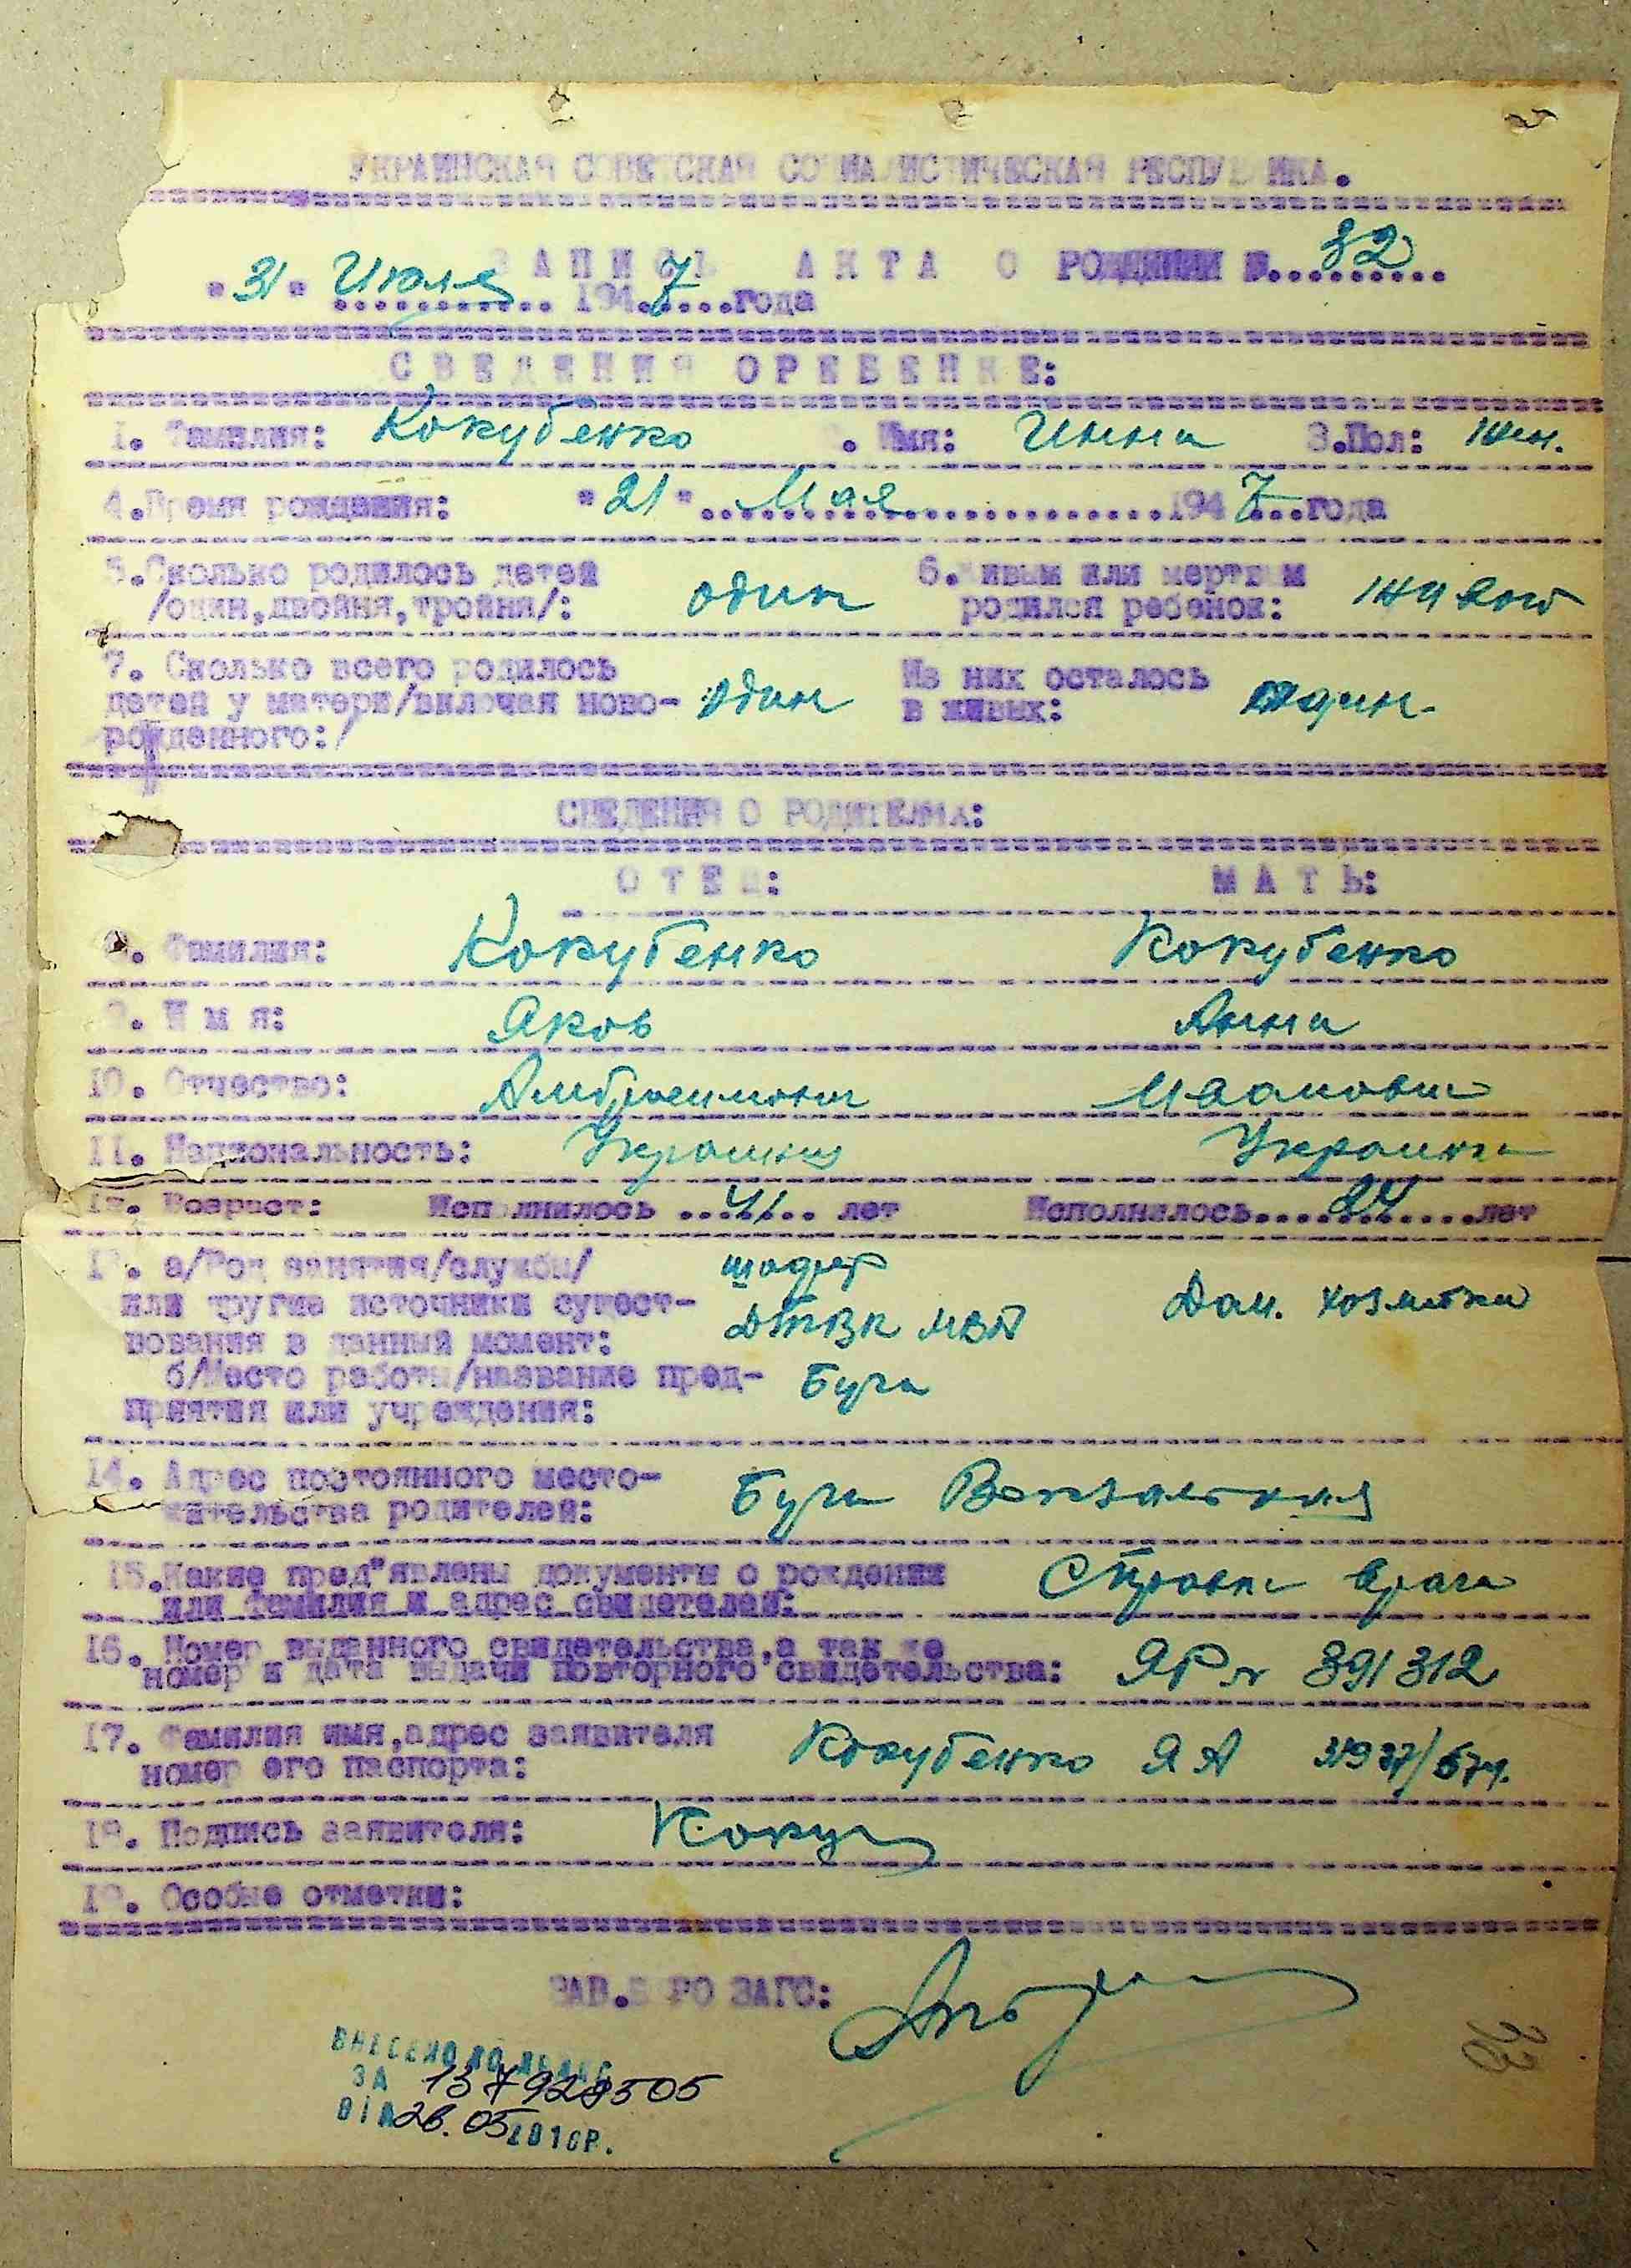 УКРАИНСКАЯ СОВЕТСКАЯ СОЦИАЛИСТИЧЕСКАЯ РЕСПУБЛИКА.
ЗАПИСЬ АКТА О РОЖДЕНИИ №..82
"31" Июля 1947 года
СВЕДЕНИЯ О РЕБЕНКЕ:
1. Фамилия: Кокубенко . Имя: Инна 3.Пол: жен.
4.Время рождения: "21" Мая 1947 года
5.Сколько родилось детей
/один,двойня,тройня/: один
6.Живым или мертвым
родился ребенок: живой
7. Сколько всего родилось
детей у матери/включая ново-
рожденного:/ один
Из них осталось
в живых: один.
СВЕДЕНИЯ О РОДИТЕЛЯХ:
ОТЕЦ: МАТЬ:
8. Фамилия: Кокубенко Кокубенко
9. Имя: Яков Анна
10. Отчество:
11. Национальность: Украинец Украинка
12. Возраст: Исполнилось ..41.. лет Исполнилось....24....лет
13. а/Род занятия/службы/
или другие источники сущест-
вования в данный момент: шофер Дом. хозяйка
б/Место работы/название пред-
приятия или учреждения: Буча
14. Адрес постоянного место-
жительства родителей: Буча Вокзальная
15.Какие пред"явлены документы о рождении
или фамилия и адрес свидетелей: Справка врача
16. Номер выданного свидетельства,а так же
номер и дата выдачи повторного свидетельства: ЯР № 391312
17. Фамилия имя,адрес заявителя
номер его паспорта: Кокубенко Я А
18. Подпись заявителя:
19. Особые отметки:
ЗАВ.БЮРО ЗАГС:
ВНЕСЕНО ДО
ЗА
ВІД 26.05 2010Р.